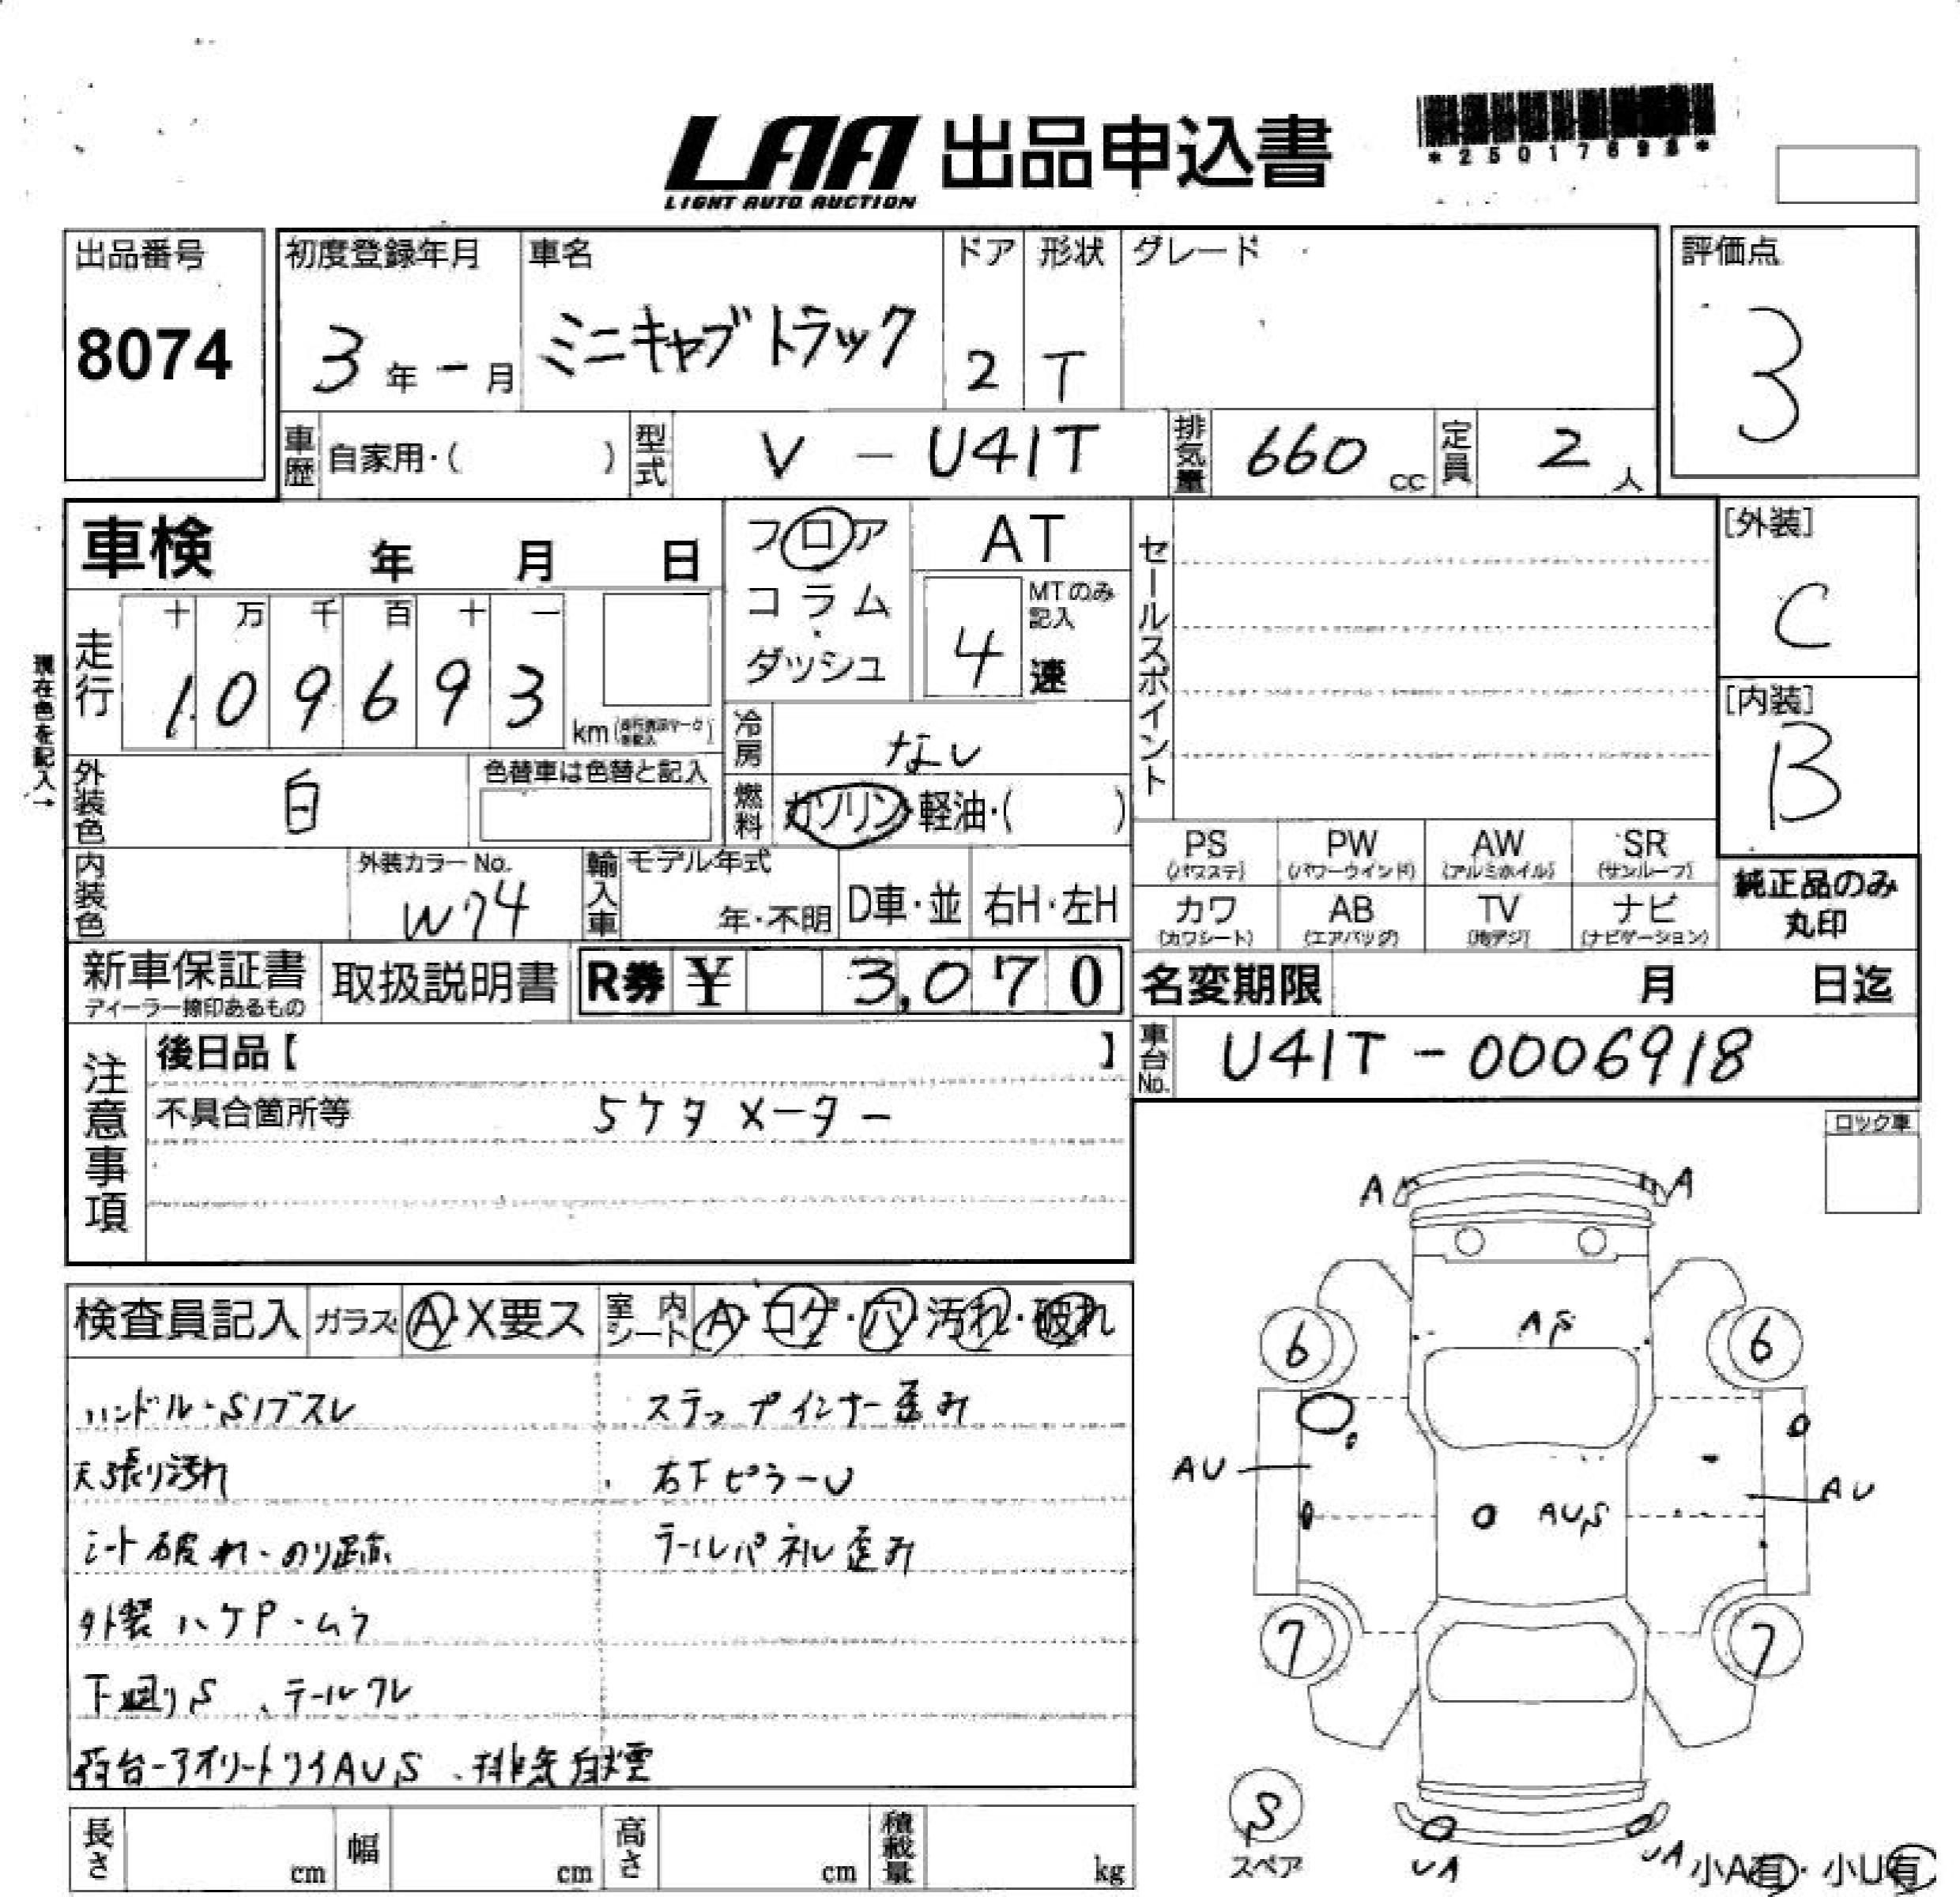 LAA 出品申込書
LIGHT AUTO AUCTION
出品番号
8074
初度登録年月
3 年 - 月
車名
ミニキャブトラック
ドア
2
形状
T
グレード
評価点
3
車歴
自家用・( )
型式
V - U41T
排気量
660 cc
定員
2 人
車検 年 月 日
フロア
コラム
ダッシュ
AT
MTのみ記入
4 速
セールスポイント
[外装]
C
[内装]
B
現在色を記入→
走行
十 万 千 百 十 一
1 0 9 6 9 3
km
冷房
なし
外装色
白
色替車は色替と記入
燃料
ガソリン・軽油・( )
内装色
外装カラーNo.
W74
輸入車
モデル年式
年・不明
D車・並
右H・左H
PS (パワステ)
PW (パワーウインド)
AW (アルミホイル)
SR (サンルーフ)
カワ (カワシート)
AB (エアバッグ)
TV (地デジ)
ナビ (ナビゲーション)
純正品のみ
丸印
新車保証書
ディーラー捺印あるもの
取扱説明書
R券 ¥ 3,070
名変期限 月 日迄
車台No.
U41T - 0006918
注意事項
後日品【 】
不具合箇所等 5ケタメーター
ロック車
検査員記入
ガラス
A・X要ス
室内シート
A・コゲ・穴・汚れ・破れ
ハンドル・S/ブスレ
ステップインナー歪み
天張り汚れ
右下ピラーU
シート破れ・のり跡
テールパネル歪み
外装ハケP・ムラ
下廻りS、テールワレ
荷台-アオリ-トリイAUS、排気白煙
A
A
AS
6
6
AU
AU
AUS
7
7
S
スペア
UA
UA
小A有・小U有
長さ cm
幅 cm
高さ cm
積載量 kg